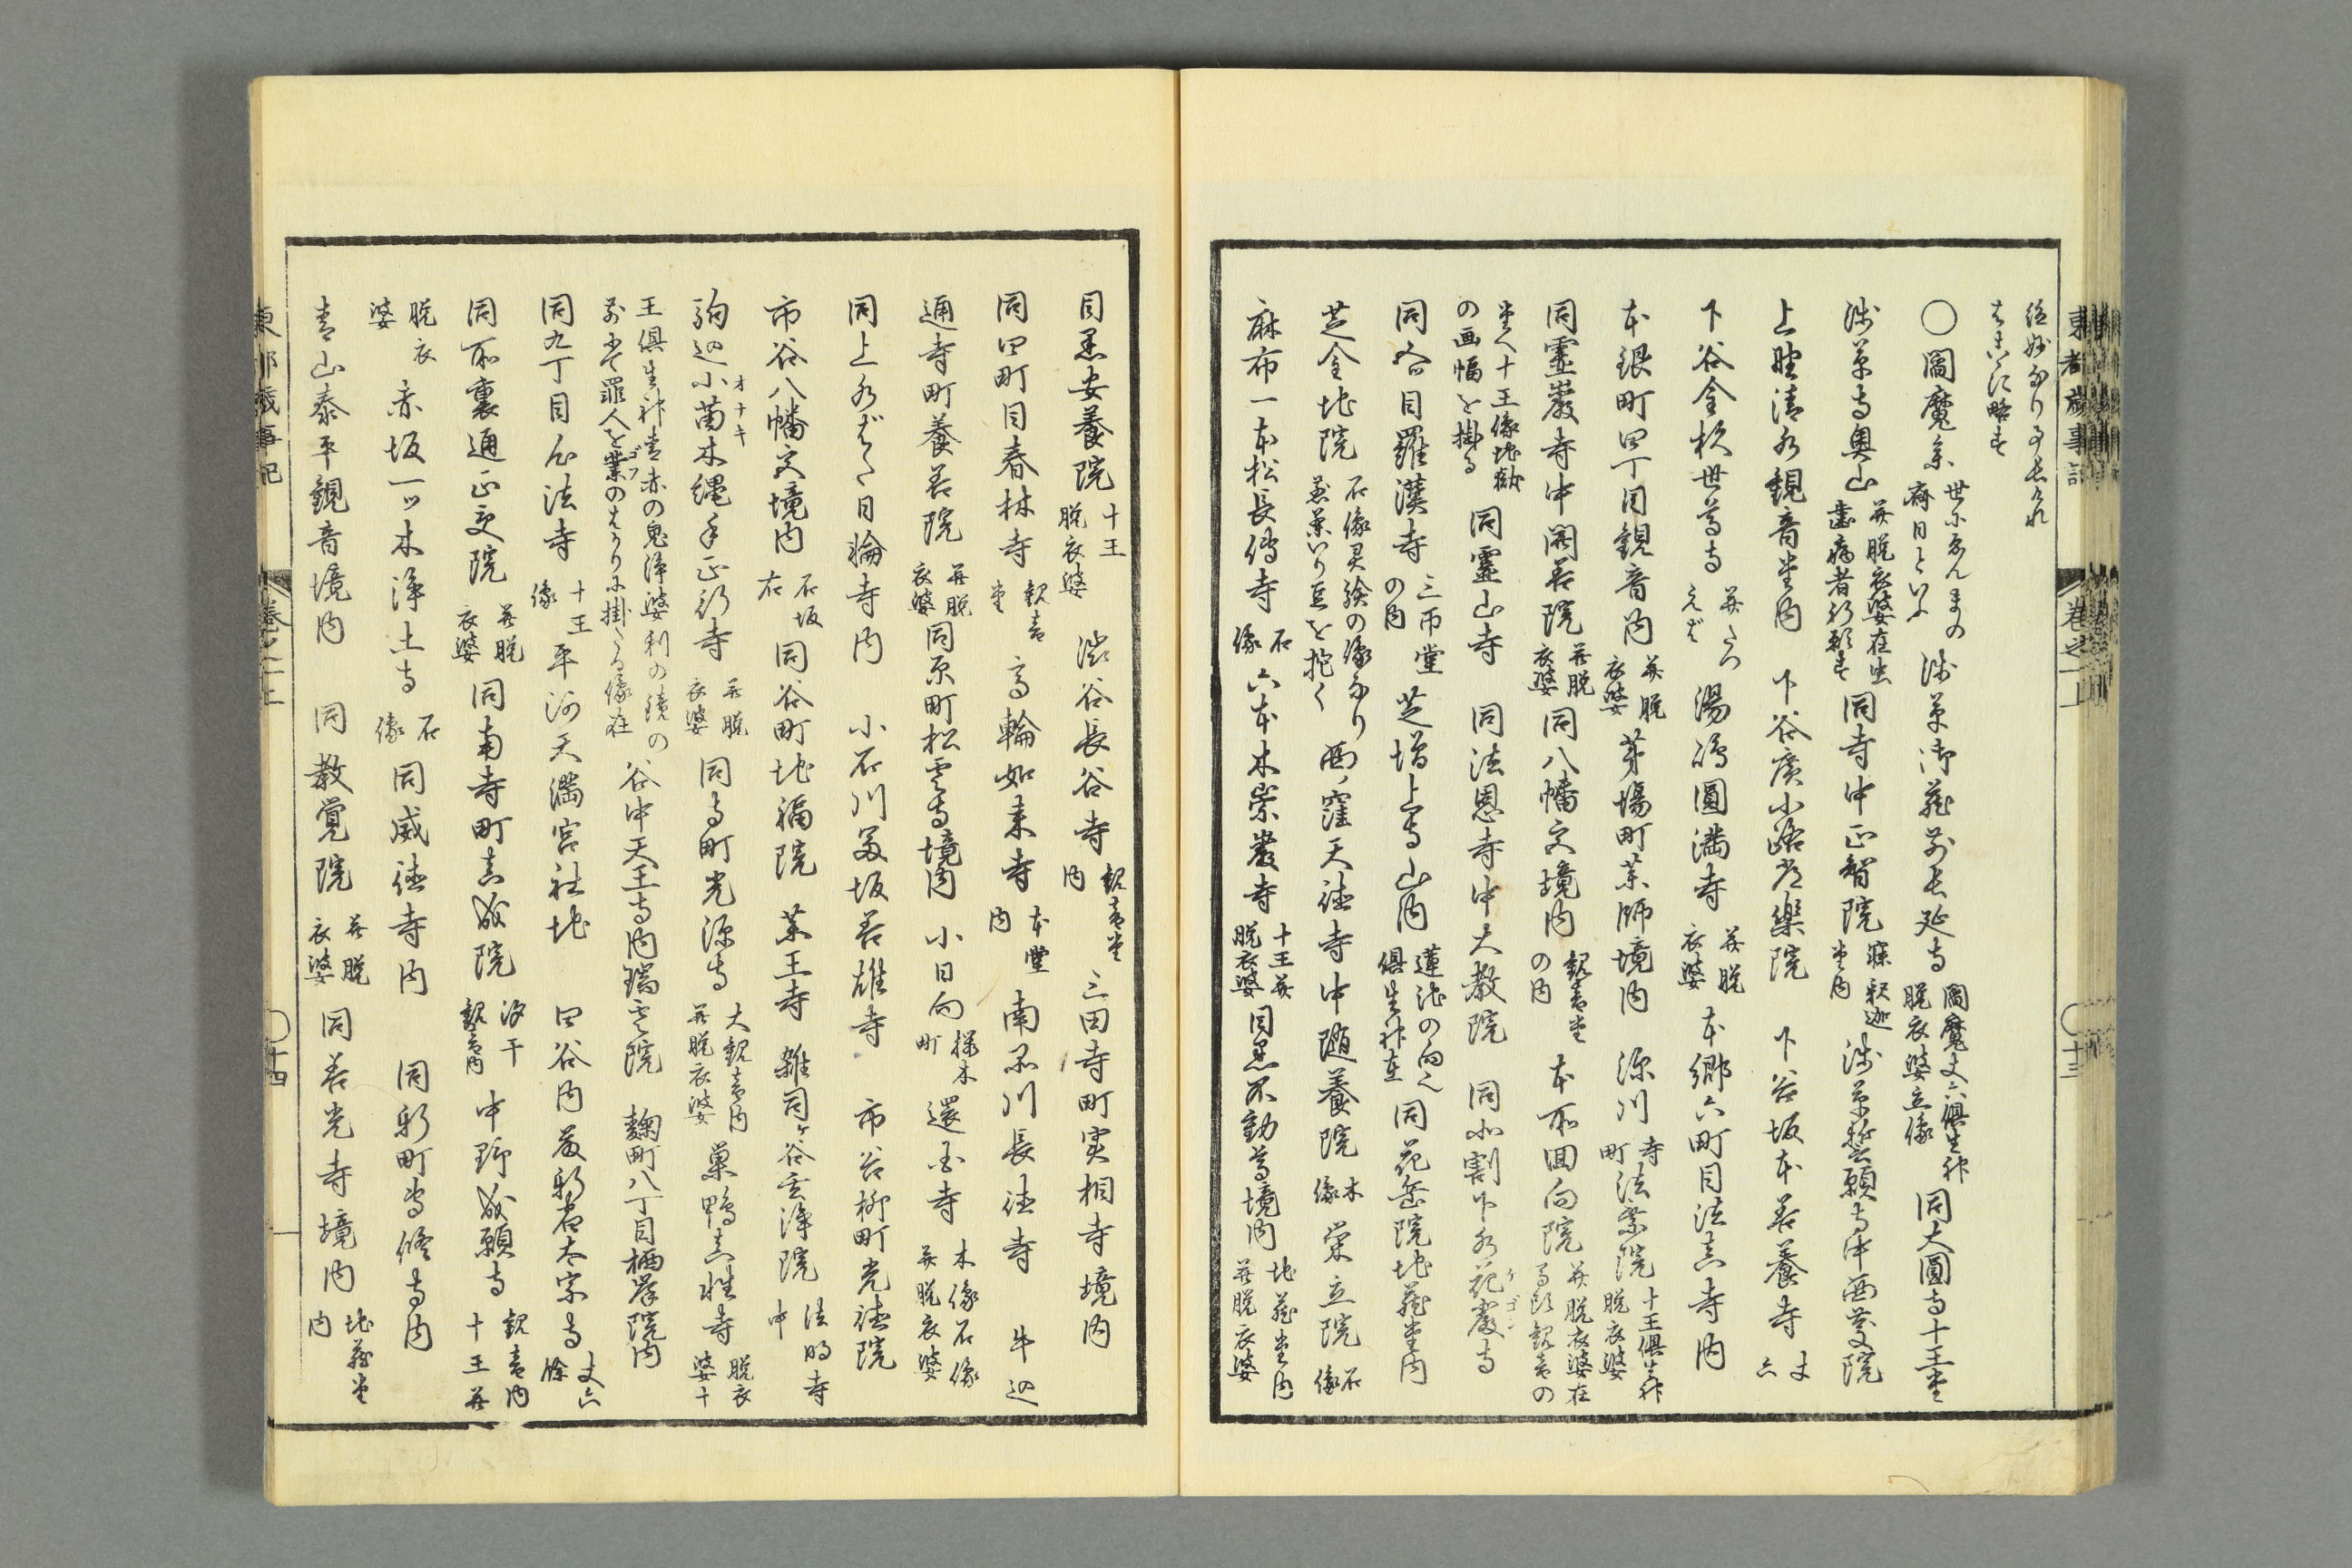 東都歳事記
巻之一上
十三
〇閻魔参 世にゑんまの斎日といふ 浅草御蔵前長延寺 閻魔丈六倶生神脱衣婆立像 同大圓寺十王堂
浅草寺奥山 并脱衣婆在虫歯病者祈願す 同寺中正智院 寐釈迦堂内 浅草誓願寺中西慶院
上野清水観音堂内 下谷廣小路常楽院 下谷坂本善養寺 丈六
下谷金杉世尊寺 湯嶋圓満寺 并脱衣婆 本郷六町目法真寺内
本銀町四丁目観音内 并脱衣婆 茅場町薬師境内 深川寺町法禅院 十王倶生神脱衣婆
同霊巌寺中開善院 并脱衣婆 同八幡宮境内 観音堂の内 本所回向院 并脱衣婆在馬頭観音の
堂へ十王像地獄の画幅を掛る 同霊山寺 同法恩寺中大教院 同北割下水花厳寺
同五ツ目羅漢寺 三帀堂の内 芝増上寺山内 蓮池の向之倶生神在 同花岳院地蔵堂内
芝金地院 石像霊験の像なり 西ノ窪天徳寺中随養院 木像 栄立院 石像
麻布一本松長傳寺 石像 六本木崇巌寺 十王并脱衣婆 目黒不動尊境内 地蔵堂内并脱衣婆
目黒安養院 十王脱衣婆 渋谷長谷寺 観音堂内 三田寺町実相寺境内
同四町目春林寺 観音堂 高輪如来寺 本堂内 南品川長徳寺 牛込
通寺町養善院 并脱衣婆 同原町松雲寺境内 小日向 桜木町 還国寺 木像石像并脱衣婆
同上水ばた日輪寺内 小石川富坂善雄寺 市谷柳町光徳院
市谷八幡宮境内 石坂右 同谷町地福院 薬王寺 雑司ヶ谷玄浄院 法明寺中
駒込小苗木縄手正行寺 并脱衣婆 同寺町光源寺 大観音内并脱衣婆 巣鴨真性寺 脱衣婆十
王倶生神青赤の鬼浄婆利の鏡の前にて罪人を業のはかりに掛たる像在 谷中天王寺内瑞雲院 麹町八丁目栖岸院内
同九丁目心法寺 十王像 平河天満宮社地 四谷内藤新宿太宗寺 丈六餘
同所裏通正受院 并脱衣婆 同南寺町真成院 汐干観音内 中野成願寺 観音内十王并
脱衣婆 赤坂一ッ木浄土寺 石像 同威徳寺内 同新町専修寺内
青山泰平観音境内 同教覚院 并脱衣婆 同善光寺境内 地蔵堂内
東都歳事記
巻之一上
十四